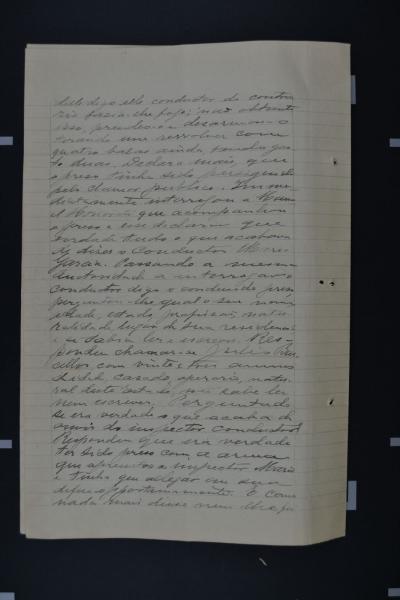 delle digo elle conductor de contra
rio fazia lhe fogo; não obstante
isso, prendeu-o e desarmou-o
tomando um revolver com
quatro balas ainda tendo gas
to duas. Declara mais, que
o preso tinha sido perseguido
pelo clamor publico. Imme
diatamente interrogou a
que acompanhou
o preso e esse declarou que
verdade tudo o que acabava
de dizer o Conductor Mario
Passando a mesma
Autoridade a interrogar o
conductor digo o conduzido preso
perguntou-lhe qual o seu nome
edade, estado, profissão, natu
ralidade lugar de sua residencia
e se sabia ler e escrever. Res-
pondeu chamar-se Julio
com vinte e tres annos
de idade, casado, operario, natu
ral deste Estado, não sabe ler
nem escrever. Perguntado
se era verdade o que acaba de
ouvir do inspector conductor
Respondeu que era verdade
ter sido preso com a arma
que apresentou o inspector Mario
e tinha que allegar em sua
defesa opportunamente. E como
nada mais disse nem lhe foi